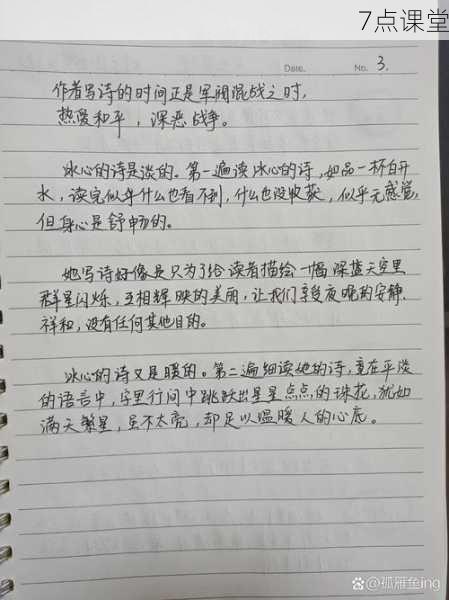 7点课堂
Date.
No. 3.
作者写诗的时间正是军阀混战之时,
热爱和平,深恶战争。
冰心的诗是淡的。第一遍读冰心的诗,如品一杯白开
水,读完似乎什么也看不到,什么也没收获,似乎无感觉,
但身心是舒畅的。
她写诗好像是只为了给读者描绘一幅深蓝天空里
群星闪烁,互相辉映的美丽,让我们享受夜晚的安静.
祥和,没有任何其他目的。
冰心的诗又是暖的。第二遍细读她的诗,竟在平淡
的语言中,字里行间中跳跃出星星点点的珠花,犹如
满天繁星,虽不太亮,却足以温暖人的心底。
@孤雁鱼ing